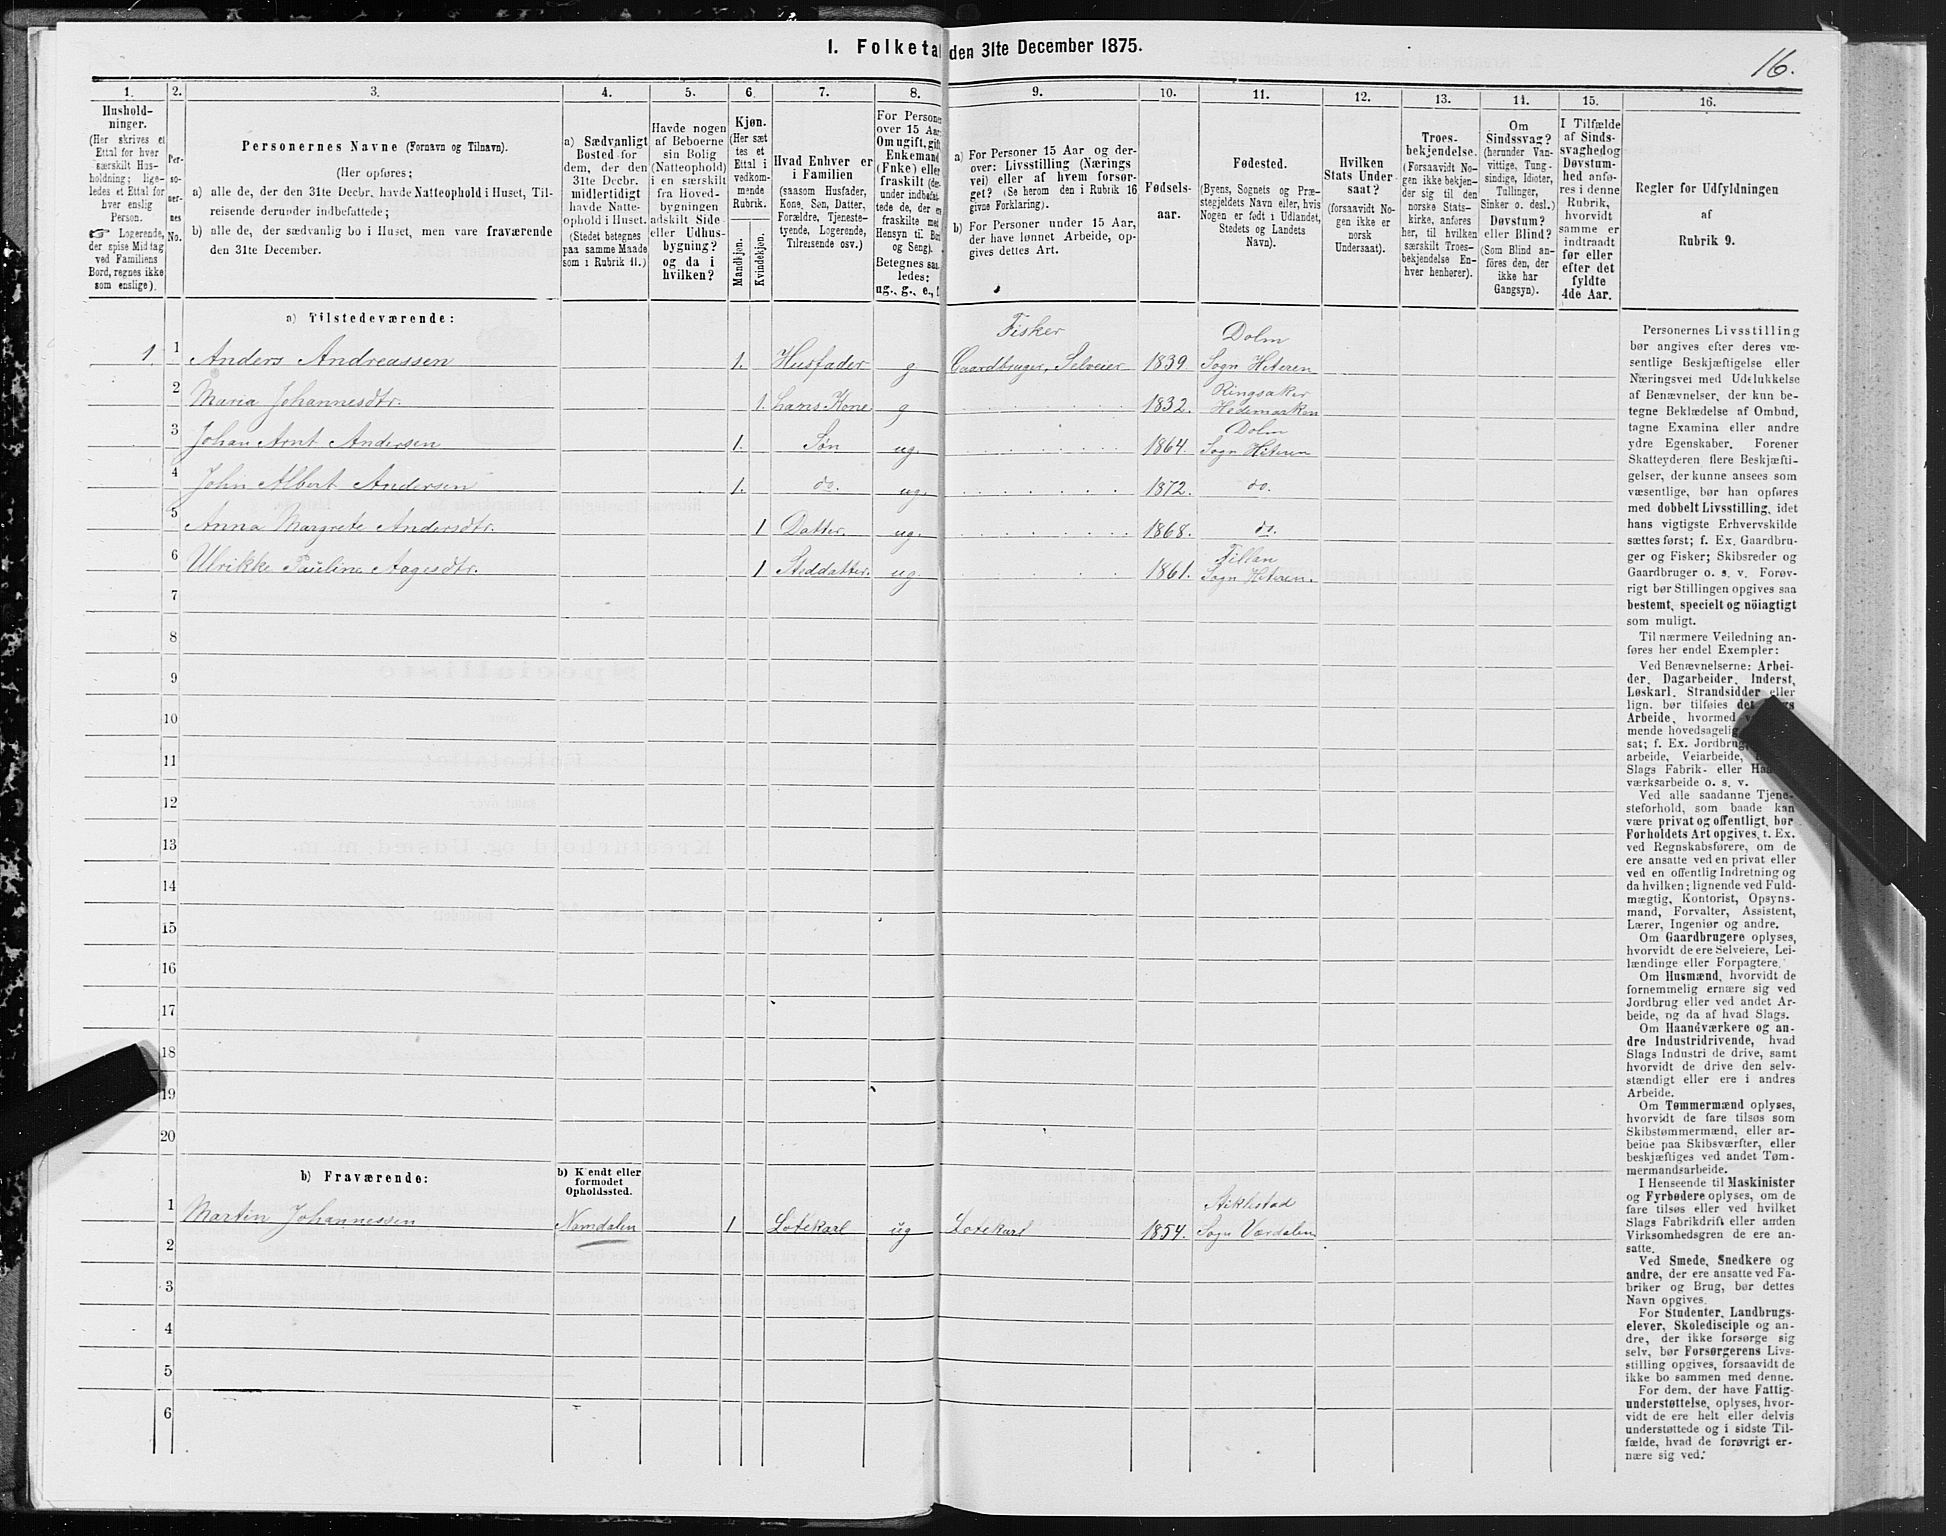 I. Folketal den 31te December 1875.
16.
1. 2. 3. 4. 5. 6. 7. 8. 9. 10. 11. 12. 13. 14. 15. 16.
Hushold-
ninger.
(Her skrives et
Ettal for hver
særskilt Hus-
holdning; lige-
ledes et Ettal for
hver enslig
Person.
☞ Logerende,
der spise Midtag
ved Familiens
Bord, regnes ikke
som enslige).
Per-
so-
ner-
nes
No.
Personernes Navne (Fornavn og Tilnavn).
(Her opføres;
a) alle de, der den 31te Decbr. havde Natteophold i Huset, Til-
reisende derunder indbefattede;
b) alle de, der sædvanlig bo i Huset, men vare fraværende
den 31te December.
a) Sædvanligt
Bosted for
dem, der den
31te Decbr.
midlertidigt
havde Natte-
ophold i Huset.
(Stedet betegnes
paa samme Maade
som i Rubrik 11.)
Havde nogen
af Beboerne
sin Bolig
(Natteophold)
i en særskilt
fra Hoved-
bygningen
adskilt Side-
eller Udhus-
bygning?
og da i
hvilken?
Kjøn.
(Her sæt
tes et
Ettal i
vedkom-
mende
Rubrik.
Mandkjøn.
Kvindekjøn.
Hvad Enhver er
i Familien
(saasom Husfader,
Kone, Søn, Datter,
Forældre, Tjeneste-
tyende, Logerende,
Tilreisende osv.)
For Personer
over 15 Aar
Om ugift, gift
Enkemand
(Enke) eller
fraskilt (der-
under indbefat-
tede de, der ere
fraskilte med
Hensyn til Bord
og Seng).
Betegnes saa-
ledes:
ug., g., e.,
a) For Personer 15 Aar og der-
over: Livsstilling (Nærings
vei) eller af hvem forsør-
get? (Se herom den i Rubrik 16
givne Forklaring).
b) For Personer under 15 Aar,
der have lønnet Arbeide, op-
gives dettes Art.
Fødsels-
aar.
Fødested.
(Byens, Sognets og Præ-
stegjeldets Navn eller, hvis
Nogen er født i Udlandet,
Stedets og Landets
Navn).
Hvilken
Stats Under
saat?
(forsaavidt No-
gen ikke er
norsk
Undersaat).
Troes-
bekjendelse.
(Forsaavidt No-
gen ikke bekjen-
der sig til den
norske Stats-
kirke, anføres
her, til hvilken
særskilt Troes-
bekjendelse En-
hver henhører).
Om
Sindssvag?
(herunder Van-
vittige, Tung-
sindige, Idioter,
Tullinger,
Sinker o. desl.)
Døvstum?
eller Blind?
(Som Blind an-
føres den, der
ikke har
Gangsyn).
I Tilfælde
af Sinds-
svaghed og
Døvstum-
hed anfø-
res i denne
Rubrik,
hvorvidt
samme er
indtraadt
før eller
efter det
fyldte
4de Aar.
Regler for Udfyldningen
af
Rubrik 9.
a) Tilstedeværende:
Fisker Dolm
1 1 Anders Andreassen 1. Husfader g Gaardbruger, Selveier 1839 Sogn Hiteren
Ringsaker
2 Maria Johannesdtr. 1. hans Kone g 1832. Hedemarken
Dolm
3 Johan Arnt Andersen 1. Søn ug 1864. Sogn Hiteren
4 John Albert Andersen 1. do. ug. 1872. do.
5 Anna Margrete Andersdtr. 1 Datter. ug. 1868. do.
Fillan
6 Ulrikke Pauline Aagesdtr. 1 Steddatter. ug. 1861. Sogn Hiteren.
7
8
9
10
11
12
13
14
15
16
17
18
19
20
b) Fraværende:
b) Kjendt eller
formodet
Opholdssted.
Stiklestad
1 Martin Johannessen Namdalen 1 Loskarl ug Loskarl 1854. Sogn Værdalen
2
3
4
5
6
Personernes Livsstilling
bør angives efter deres væ-
sentlige Beskjæftigelse eller
Næringsvei med Udelukkelse
af Benævnelser, der kun be-
tegne Beklædelse af Ombud,
tagne Examina eller andre
ydre Egenskaber. Forener
Skatteyderen flere Beskjæfti-
gelser, der kunne ansees som
væsentlige, bør han opføres
med dobbelt Livsstilling, idet
hans vigtigste Erhvervskilde
sættes først; f. Ex. Gaardbru-
ger og Fisker; Skibsreder og
Gaardbruger o. s. v. Forøv-
rigt bør Stillingen opgives saa
bestemt, specielt og nöiagtigt
som muligt.
Til nærmere Veiledning an-
føres her endel Exempler:
Ved Benævnelserne: Arbei-
der, Dagarbeider, Inderst,
Løskarl, Strandsidder eller
lign. bør tilføies det
Arbeide, hvormed
mende hovedsagelig
sat; f. Ex. Jordbrug
arbeide, Veiarbeide,
Slags Fabrik- eller
værksarbeide o. s. v.
Ved alle saadanne Tjene-
steforhold, som baade kan
være privat og offentligt, bør
Forholdets Art opgives, t. Ex.
ved Regnskabsførere, om de
ere ansatte ved en privat eller
ved en offentlig Indretning og
da hvilken; lignende ved Fuld-
mægtig, Kontorist, Opsyns-
mand, Forvalter, Assistent,
Lærer, Ingeniør og andre.
Om Gaardbrugere oplyses,
hvorvidt de ere Selveiere, Lei-
lændinge eller Forpagtere.
Om Husmænd, hvorvidt de
fornemmelig ernære sig ved
Jordbrug eller ved andet Ar-
beide, og da af hvad Slags.
Om Haandværkere og an-
dre Industridrivende, hvad
Slags Industri de drive, samt
hvorvidt de drive den selv-
stændigt eller ere i andres
Arbeide.
Om Tømmermænd oplyses,
hvorvidt de fare tilsøs som
Skibstømmermænd, eller ar-
beide paa Skibsværfter, eller
beskjæftiges ved andet Tøm-
mermandsarbeide.
I Henseende til Maskinister
og Fyrbødere oplyses, om de
fare tilsøs eller ved hvilket
Slags Fabrikdrift eller anden
Virksomhedsgren de ere an-
satte.
Ved Smede, Snedkere og
andre, der ere ansatte ved Fa-
briker og Brug, bør dettes
Navn opgives.
For Studenter, Landbrugs-
elever, Skoledisciple og an-
dre, der ikke forsørge sig
selv, bør Forsørgerens Livs-
stilling opgives, forsaavidt de
ikke bo sammen med denne.
For dem, der have Fattig-
understøttelse, oplyses, hvor-
vidt de ere helt eller delvis
understøttede og i sidste Til-
fælde, hvad de forøvrigt er-
nære sig ved.